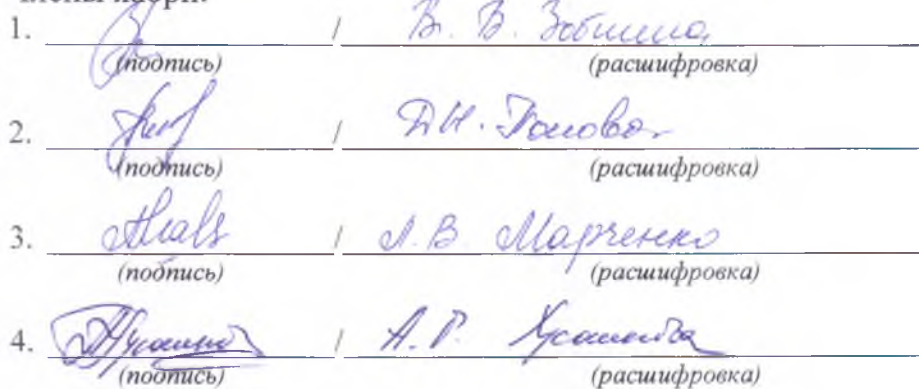 1. / В. В. Зобнина
(подпись) (расшифровка)
2. / Д.Н. Попова
(подпись) (расшифровка)
3. / Л. В. Марченко
(подпись) (расшифровка)
4. / А. Р. Хусаинова
(подпись) (расшифровка)